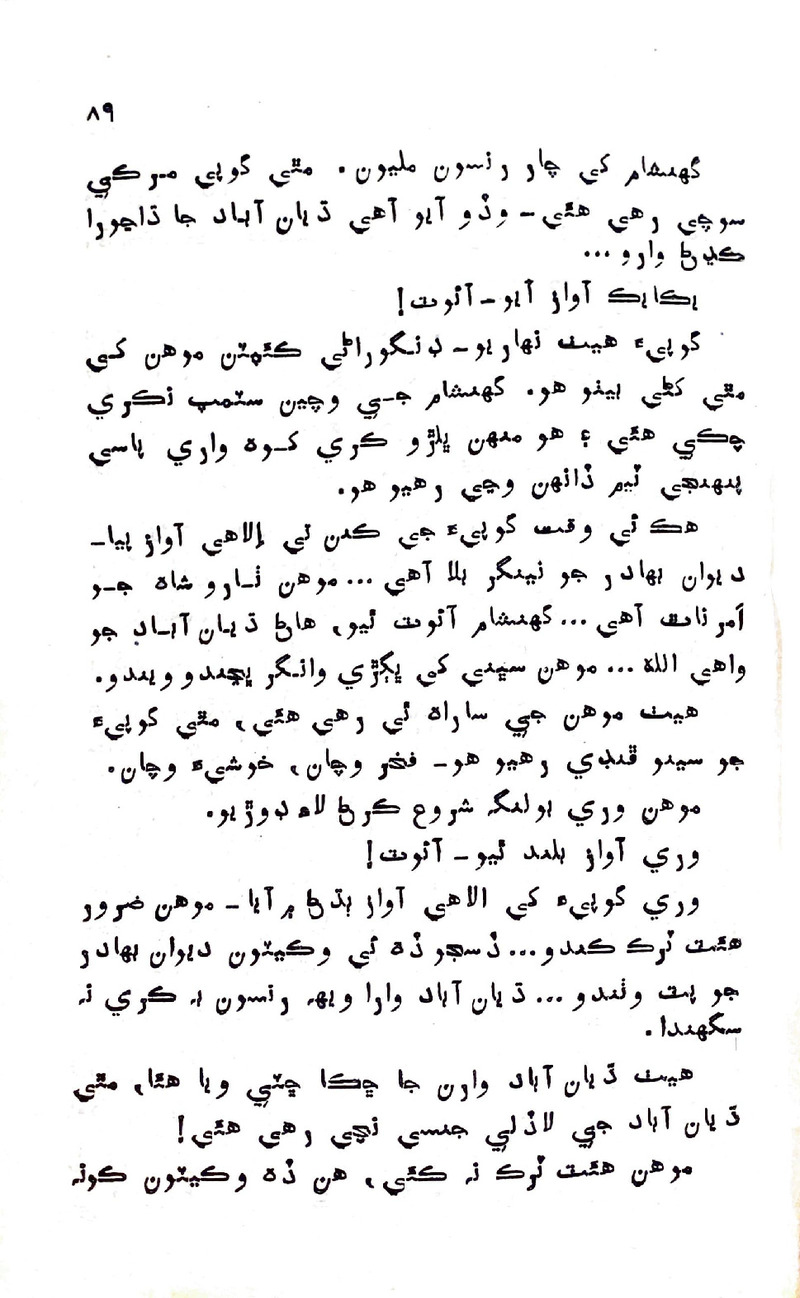 ۸۹
گهنشام کي چار رنسون مليون. مٿي گوپي مرڪي
سوچي رهي هئي - وڏو آيو آهي ڌيان آباد جا ڌاچورا
ڪڍڻ وارو...
يڪايڪ آواز آيو - آئوٽ!
گوپيءَ هيٺ نهاريو - ڊنگوراڻي ڪئچٽن موهن کي
مٿي کڻي بيٺو هو. گهنشام جي وچين سٽمپ نڪري
چڪي هئي ۽ هو منهن ڀلڙو ڪري کوه واري پاسي
پنهنجي ٽيم ڏانهن وڃي رهيو هو.
هڪ ئي وقت گوپيءَ جي ڪنن تي إلاهي آواز پيا -
ديوان بهادر جو نينگر بلا آهي... موهن نارو شاه جو
اَمرناٿ آهي... گهنشام آئوٽ ٿيو، هاڻ ڌيان آباد جو
واهي الله... موهن سڀني کي ڀڳڙي وانگر ڀڃندو ويندو.
هيٺ موهن جي ساراه ٿي رهي هئي، مٿي گوپيءَ
جو سينو ڦنڊي رهيو هو - فخر وچان، خوشيءَ وچان.
موهن وري بولنگ شروع ڪرڻ لاءِ ڊوڙيو.
وري آواز بلند ٿيو - آئوٽ!
وري گوپيءَ کي الاهي آواز ٻڌڻ ۾ آيا - موهن ضرور
هئٽ ٽرڪ ڪندو... ڏسجو ڏه ئي وڪيٽون ديوان بهادر
جو پٽ وٺندو... ڌيان آباد وارا ويهه رنسون به ڪري نه
سگهندا.
هيٺ ڌيان آباد وارن جا ڇڪا ڇٽي ويا هئا، مٿي
ڌيان آباد جي لاڏلي جنسي نچي رهي هئي!
موهن هئٽ ٽرڪ نه ڪئي، هن ڏه وڪيٽون ڪونه